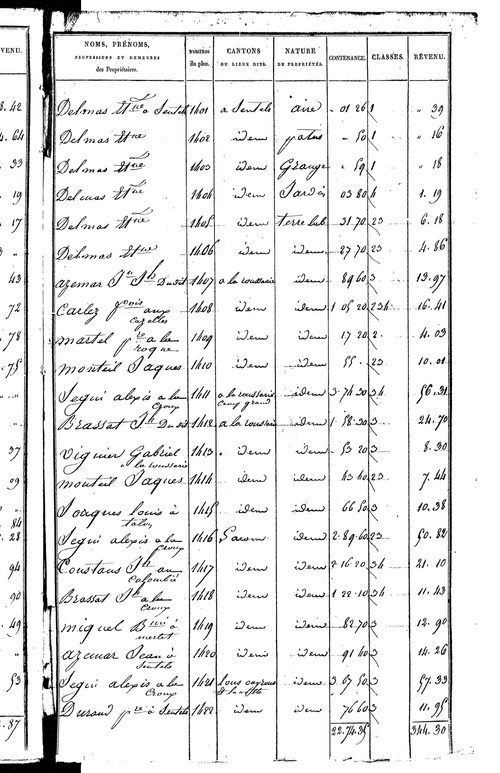 VENU.
NOMS, PRÉNOMS, PROFESSIONS ET DEMEURES des Propriétaires. NUMÉROS du plan. CANTONS OU LIEUX DITS. NATURE DE PROPRIÉTÉS. CONTENANCE. CLASSES. REVENU.
Delmas Et.ne à Sentels 1401 a Sentels aire 01 26 1 " 39
Delmas Et.ne 1402 idem patus " 50 1 " 16
Delmas Et.ne 1403 idem Grange " 59 1 " 18
Delmas Et.ne 1404 idem Jardin 03 80 4 1. 19
Delmas Et.ne 1405 idem terre lab. 31.70 23 6. 18
Delmas Et.ne 1406 idem idem 27 70 23 4. 86
azemar J.n J.h Dudit 1407 a la roussarie idem 89 60 3 13. 97
Carlez f.çois aux cazelles 1408 idem idem 1 05 20 234 16. 41
martel p.re a la roque 1409 idem idem 17 20 2. 4. 03
monteil Jaques 1410 idem idem 55 23 10. 01
Segui alexis a la Croux 1411 a la roussarie camp grand idem 3 74 30 34 56. 31
Brassat J.h Dudit 1412 a la roussarie idem 1 58 30 3 24. 70
Viguier Gabriel a la roussarie 1413 idem idem 53 20 3 8. 30
monteil Jaques 1414 idem idem 43 40 23 7. 44
Joaques louis à 1415 idem idem 66 50 3 10. 38
Segui alexis a la Croux 1416 idem 2 89 60 23 50. 82
Coustans J.h au colombié 1417 idem idem 2 16 20 34 21. 10
Brassat J.h a la Croux 1418 idem idem 1 22 10 34 11. 43
miquel B.mi à 1419 idem idem 82 70 3 12. 90
azemar Jean à Sentels 1420 idem idem 91 40 3 14. 26
Segui alexis a la Croux 1421 idem 3 67 50 3 57. 33
Durand p.re à Sentels 1422 idem idem 76 60 3 11. 95
22.74.35 344.30